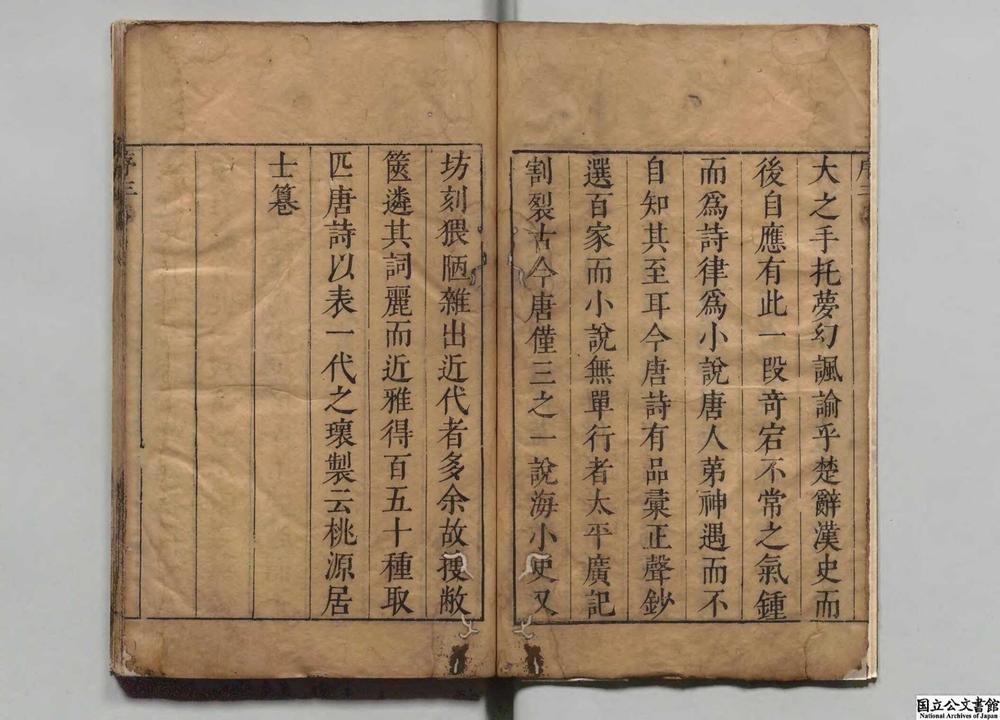 大之手托夢幻諷諭乎楚辭漢史而
後自應有此一段竒宕不常之氣鍾
而爲詩律爲小說唐人苐神遇而不
自知其至耳今唐詩有品彙正聲鈔
選百家而小說無單行者太平廣記
割裂古今唐僅三之一說海小史又
坊刻猥陋雜出近代者多余故𢱢敝
篋遴其詞麗而近雅得百五十種取
匹唐詩以表一代之瓌製云桃源居
士篹
序三
国立公文書館
National Archives of Japan